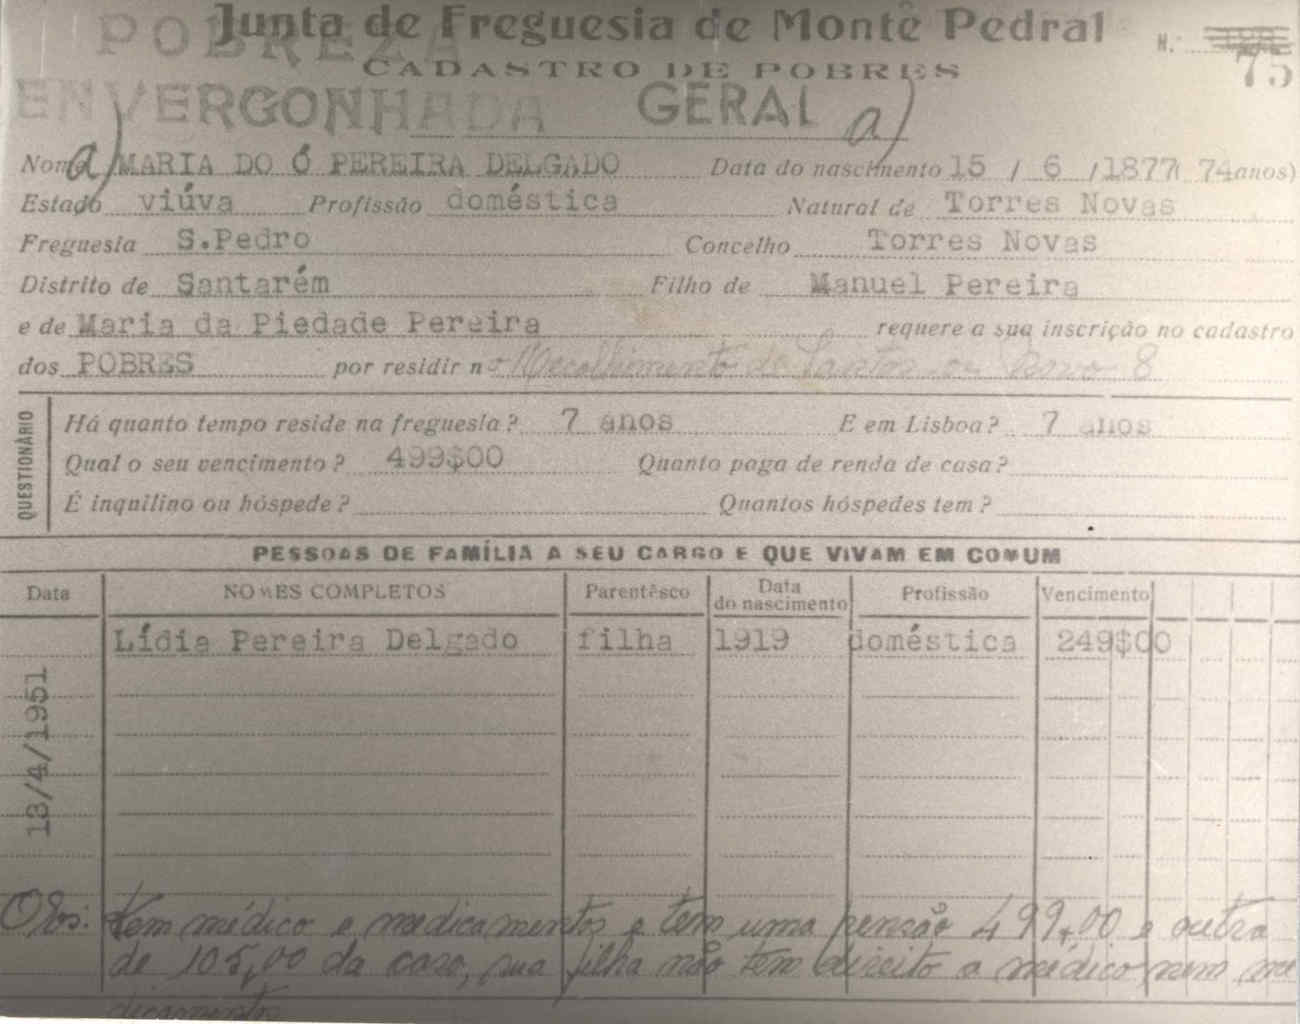 Junta de Freguesia de Monte Pedral
N.º 75
POBREZA
CADASTRO DE POBRES
ENVERGONHADA GERAL a)
Nome a) MARIA DO Ó PEREIRA DELGADO Data do nascimento 15 / 6 /1877 74 anos)
Estado viúva Profissão doméstica Natural de Torres Novas
Freguesia S.Pedro Concelho Torres Novas
Distrito de Santarém Filho de Manuel Pereira
e de Maria da Piedade Pereira requere a sua inscrição no cadastro
dos POBRES por residir no Recolhimento de Santos o Novo 8
QUESTIONÁRIO
Há quanto tempo reside na freguesia? 7 anos E em Lisboa? 7 anos
Qual o seu vencimento? 499$00 Quanto paga de renda de casa?
É inquilino ou hóspede? Quantos hóspedes tem?
PESSOAS DE FAMÍLIA A SEU CARGO E QUE VIVAM EM COMUM
Data NOMES COMPLETOS Parentêsco Data do nascimento Profissão Vencimento
13/4/1951 Lídia Pereira Delgado filha 1919 doméstica 249$00
Obs: Tem médico e medicamentos e tem uma pensão 499,00 e outra
de 105,00 da casa, sua filha não tem direito a médico nem me
dicamentos